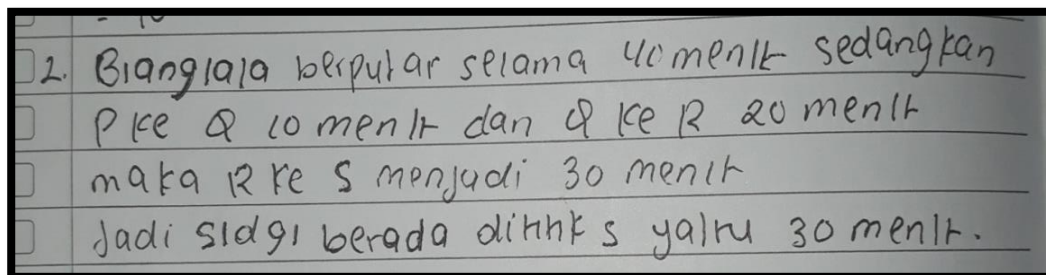 2. Bianglala berputar selama 40 menit sedangkan
P ke Q 10 menit dan Q ke R 20 menit
maka R ke S menjadi 30 menit
Jadi sidgi berada dititik s yaitu 30 menit.